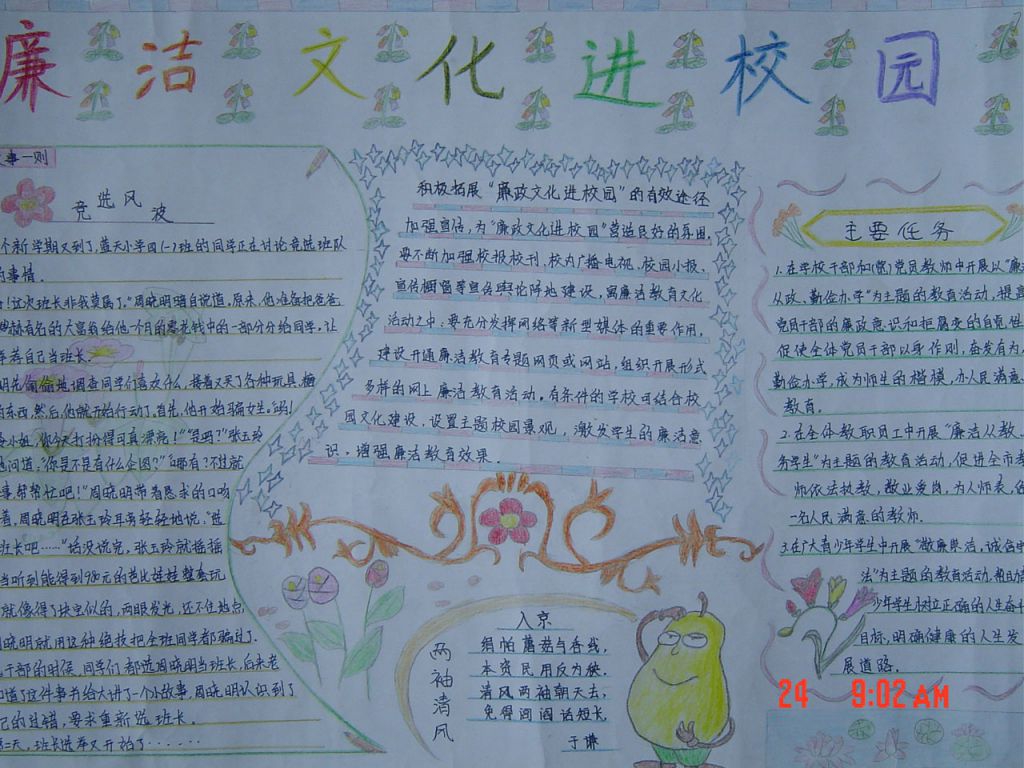 廉洁文化进校园
事一则
竞选风波
个新学期又到了,蓝天小学四(一)班的同学正在讨论竞选班队
的事情。
!这次班长非我莫属了。"周晓明暗自说道,原来,他准备把爸爸
赫有名的大富翁给他一个月的零花钱中的一部分分给同学,让
荐自己当班长。
明先偷偷地调查同学们喜欢什么,接着又买了各种玩具,糖
的东西,然后,他就开始行动了。首先,他开始骗女生。"妈!
小姐,你今天打扮得可真漂亮!""是吗?"张玉玲
地问道,"你是不是有什么企图?""哪有?不过就
事帮帮忙吧!"周晓明带着恳求的口吻
着,周晓明在张玉玲耳旁轻轻地说,"选
班长吧……"话没说完,张玉玲就摇摇
当听到能得到980元的芭比娃娃整套玩
就像得了块宝似的,两眼发光,还不住地点,
晓明就用这种绝技把全班同学都骗过了.
干部的时候,同学们都选周晓明当班长,后来老
知道了这件事并给大讲了一个小故事,周晓明认识到了
己的过错,要求重新选班长.
第二天,班长选举又开始了……
积极拓展"廉政文化进校园"的有效途径
加强宣传,为"廉政文化进校园"营造良好的氛围,
要不断加强校报校刊、校内广播电视、校园小报、
宣传橱窗等宣传舆论阵地建设,寓廉洁教育文化
活动之中;要充分发挥网络等新型媒体的重要作用,
建设开通廉洁教育专题网页或网站,组织开展形式
多样的网上廉洁教育活动。有条件的学校可结合校
园文化建设,设置主题校园景观,激发学生的廉洁意
识,增强廉洁教育效果.
两袖清风
入京
绢帕蘑菇与香线,
本资民用反为殃.
清风两袖朝天去,
免得闾阎话短长.
于谦
主要任务
1.在学校干部和(党)党员教师中开展以"廉
从政、勤俭办学"为主题的教育活动,提高
党员干部的廉政意识和拒腐变的自觉性
促使全体党员干部以身作则,奋发有为,
勤俭办学,成为师生的楷模,办人民满意
教育.
2.在全体教职员工中开展"廉洁从教、
务学生"为主题的教育活动,促进全市教
师依法执教,敬业爱岗,为人师表,
一名人民满意的教师.
3.在广大青少年学生中开展"敬廉崇洁,诚信
法"为主题的教育活动,帮助
少年学生树立正确的人生
目标,明确健康的人生发
展道路.
24 9:02AM